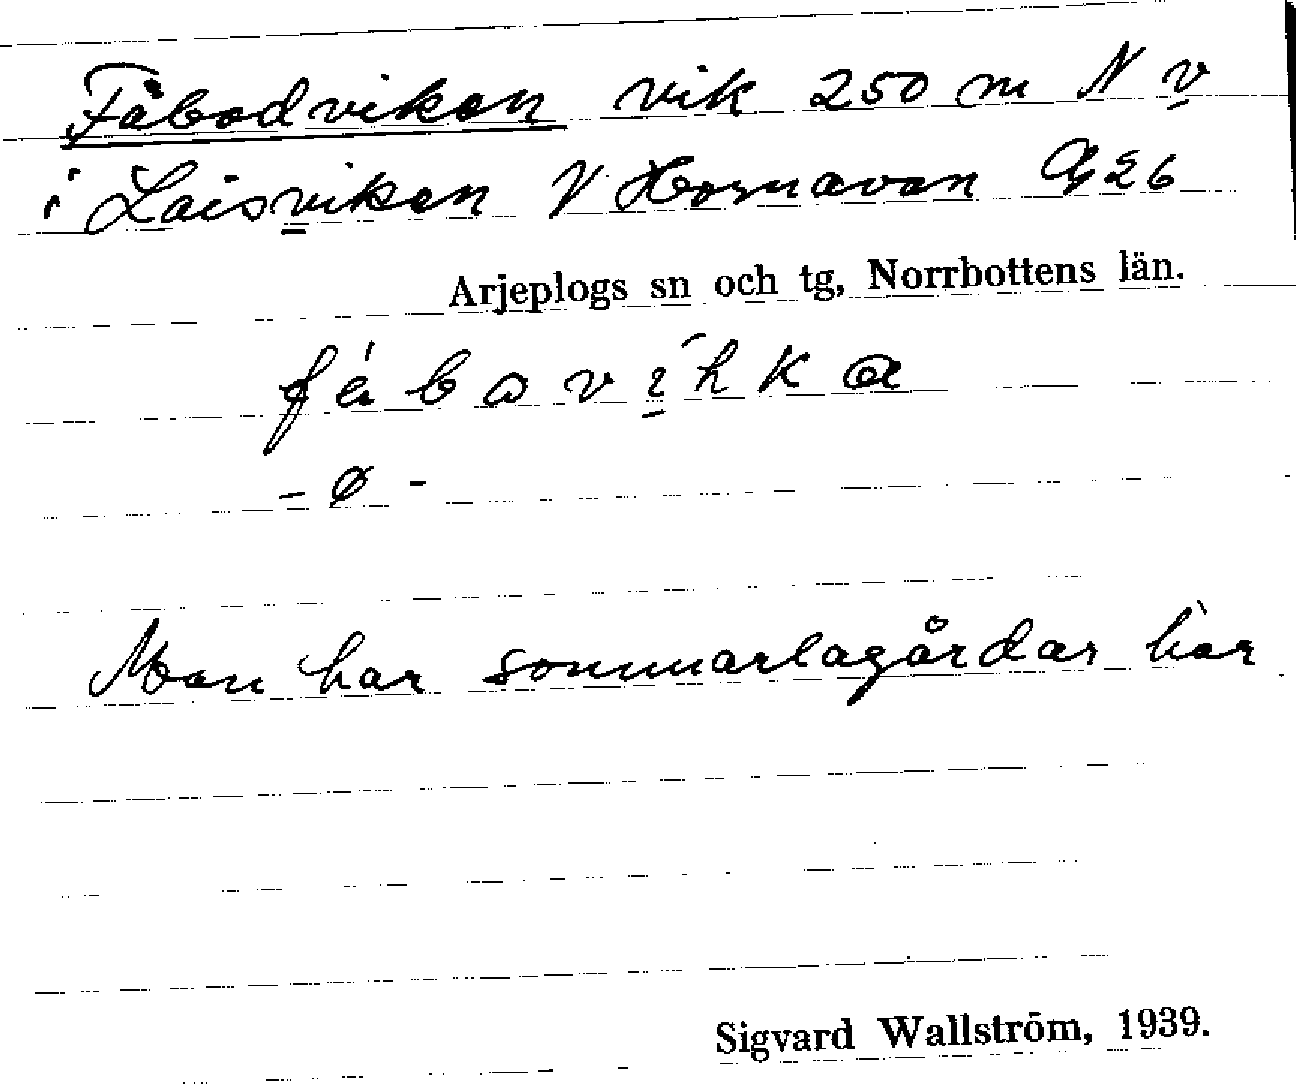 Fäbodviken vik 250 m N v
i Laisviken V Hornavan G26
Arjeplogs sn och tg, Norrbottens län.
-ø-
Man har sommarlagårdar här
Sigvard Wallström, 1939.